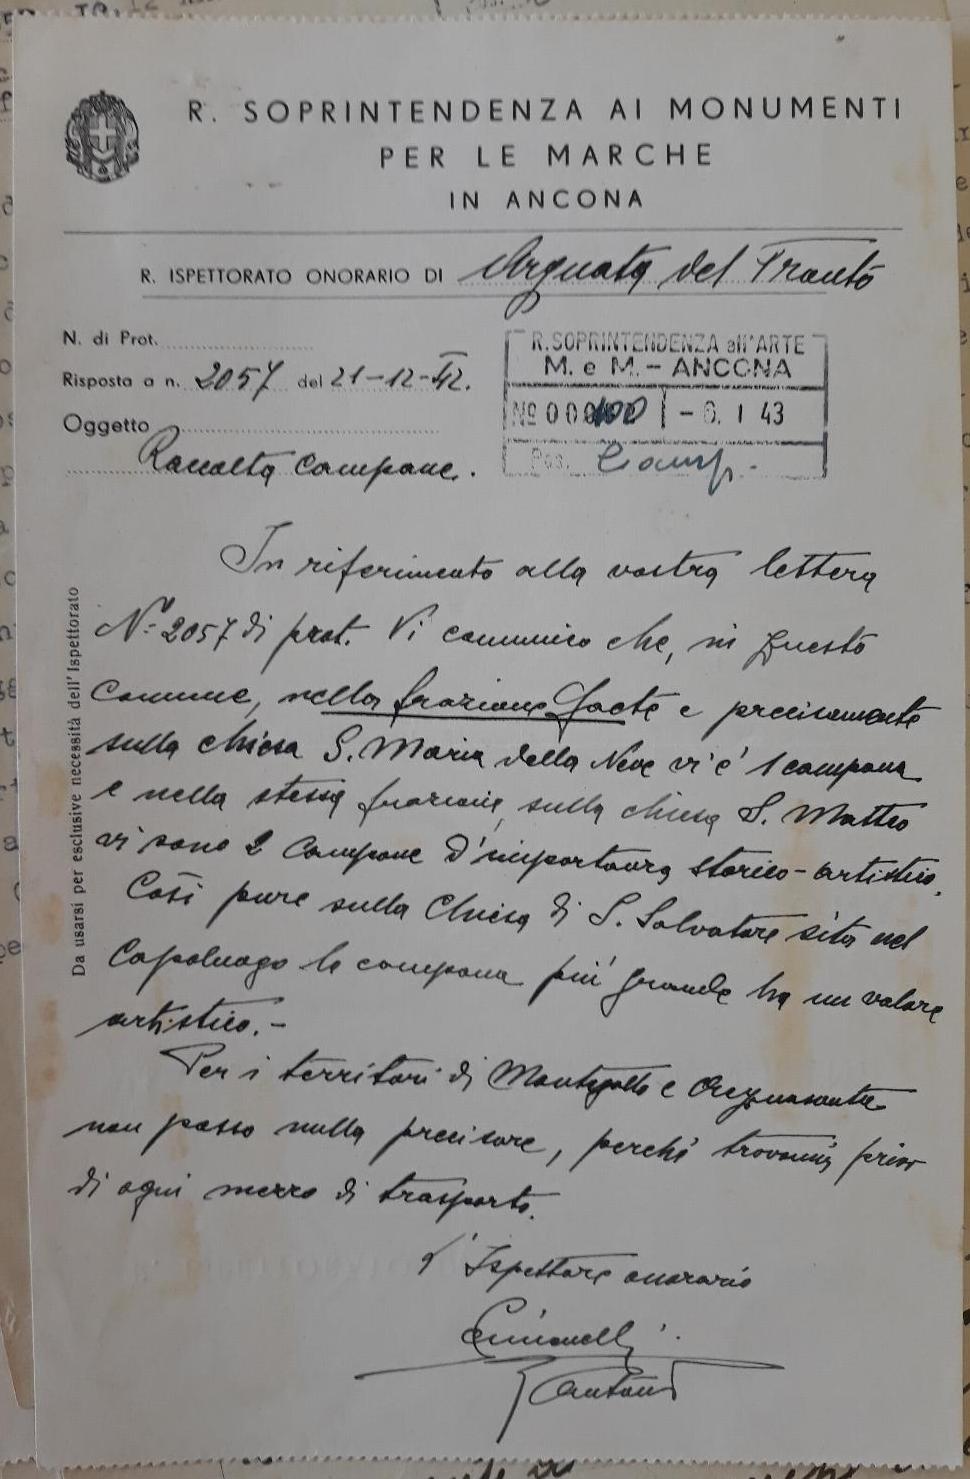 R. SOPRINTENDENZA AI MONUMENTI
PER LE MARCHE
IN ANCONA
R. ISPETTORATO ONORARIO DI Arquata del Tronto
N. di Prot.
Risposta a n. 2057 del 21-12-42.
Oggetto
Raccolta campane.
R. SOPRINTENDENZA all'ARTE
M. e M. - ANCONA
No 000 100 - 6. 1 43
Pos. Camp.
Da usarsi per esclusive necessità dell'Ispettorato
In riferimento alla vostra lettera
N. 2057 di prot. Vi comunico che, in questo
Comune, nella frazione e precisamente
sulla chiesa S. Maria della Neve vi è 1 campana
e nella stessa frazione, sulla chiesa S. Matteo
vi sono 2 campane d'importanza storico-artistica.
Così pure sulla Chiesa di S. Salvatore sita nel
Capoluogo la campana più grande ha un valore
artistico.-
Per i territori di Montegallo e Acquasanta
non posso nulla precisare, perché trovomi privo
di ogni mezzo di trasporto.
L'Ispettore onorario